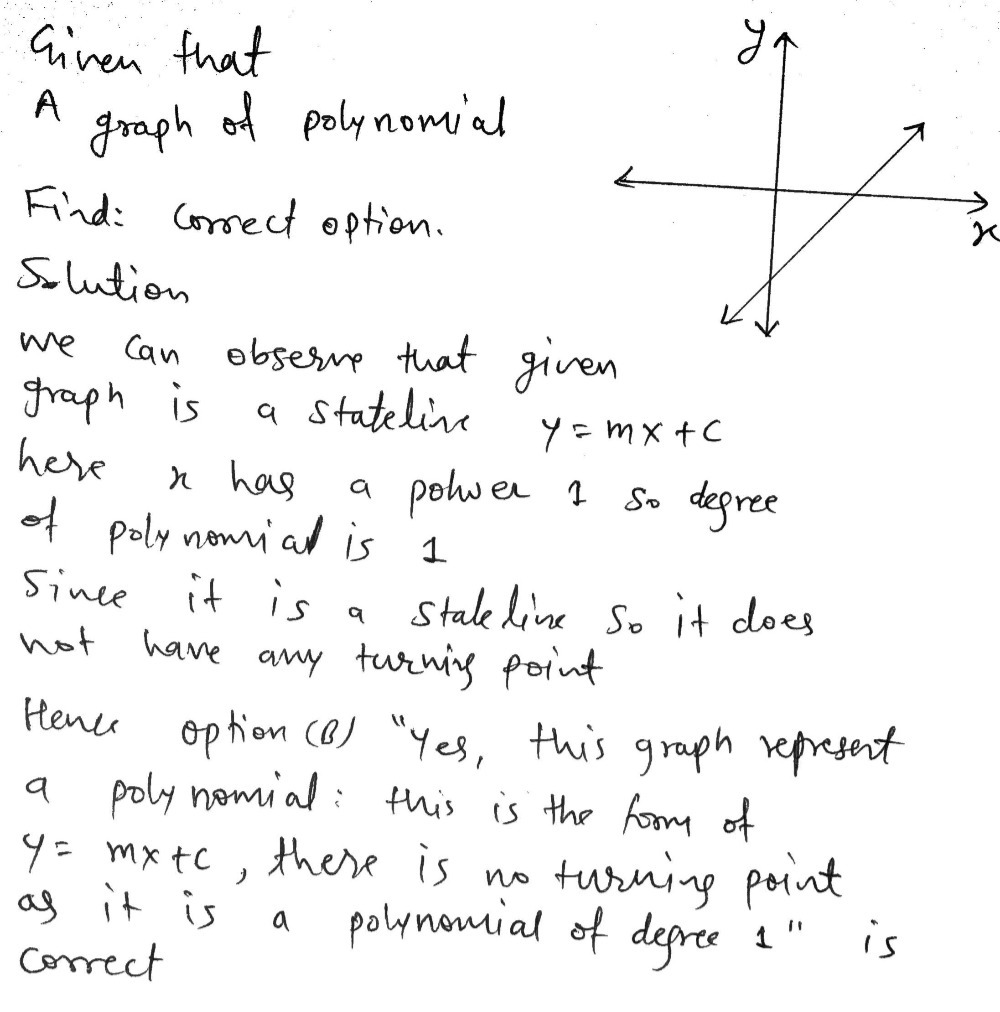 Given that
A graph of polynomial
y
x
Find: Correct option.
Solution
we can observe that given
graph is a stateline y = mx + c
here x has a power 1 so degree
of polynomial is 1
Since it is a stateline so it does
not have any turning point
Hence option (B) "Yes, this graph represent
a polynomial: this is the form of
y = mx + c, there is no turning point
as it is a polynomial of degree 1" is
correct